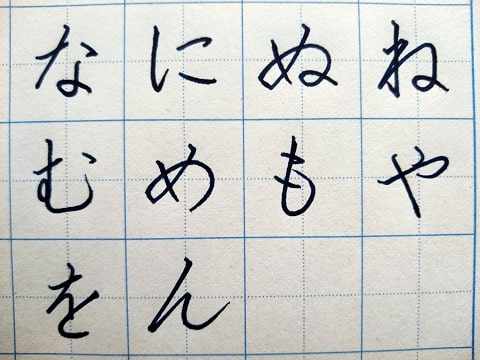 なにぬね
むめもや
をん